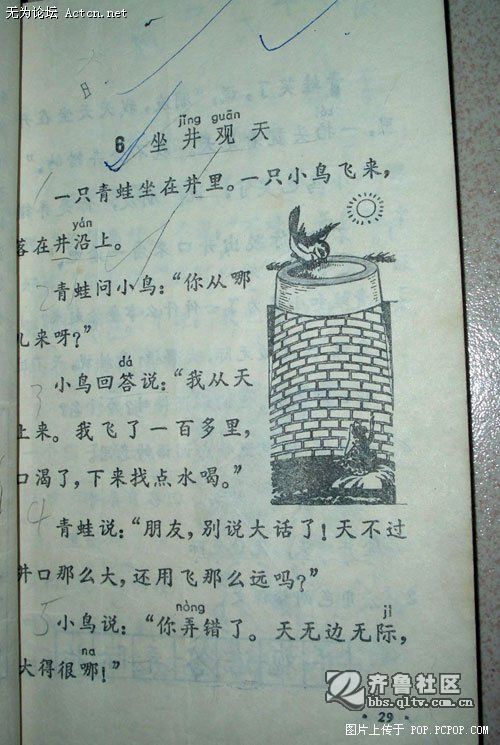 无为论坛 Actcn.net
jǐng guān
6 坐井观天
一只青蛙坐在井里。一只小鸟飞来，
yán
落在井沿上。
2 青蛙问小鸟：“你从哪
儿来呀？”
dá
3 小鸟回答说：“我从天
上来。我飞了一百多里，
口渴了，下来找点水喝。”
4 青蛙说：“朋友，别说大话了！天不过
井口那么大，还用飞那么远吗？”
nòng jì
5 小鸟说：“你弄错了。天无边无际，
na
大得很哪！”
齐鲁社区
bbs.qltv.com.cn
· 29 ·
图片上传于 POP.PCPOP.COM